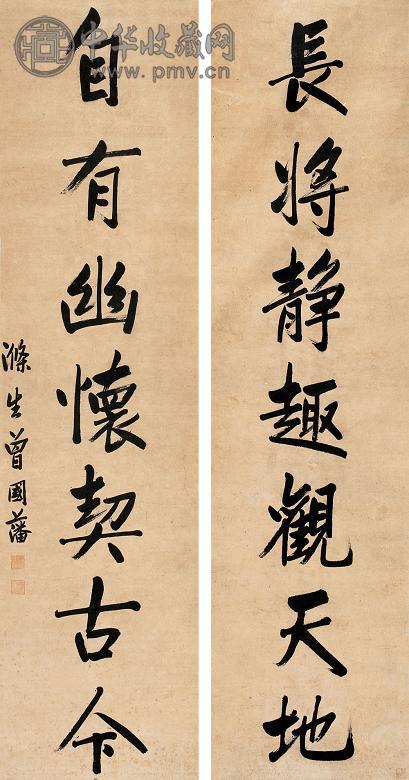 長將靜趣觀天地
自有幽懷契古今
滌生曾國藩
中华收藏网
www.pmv.cn